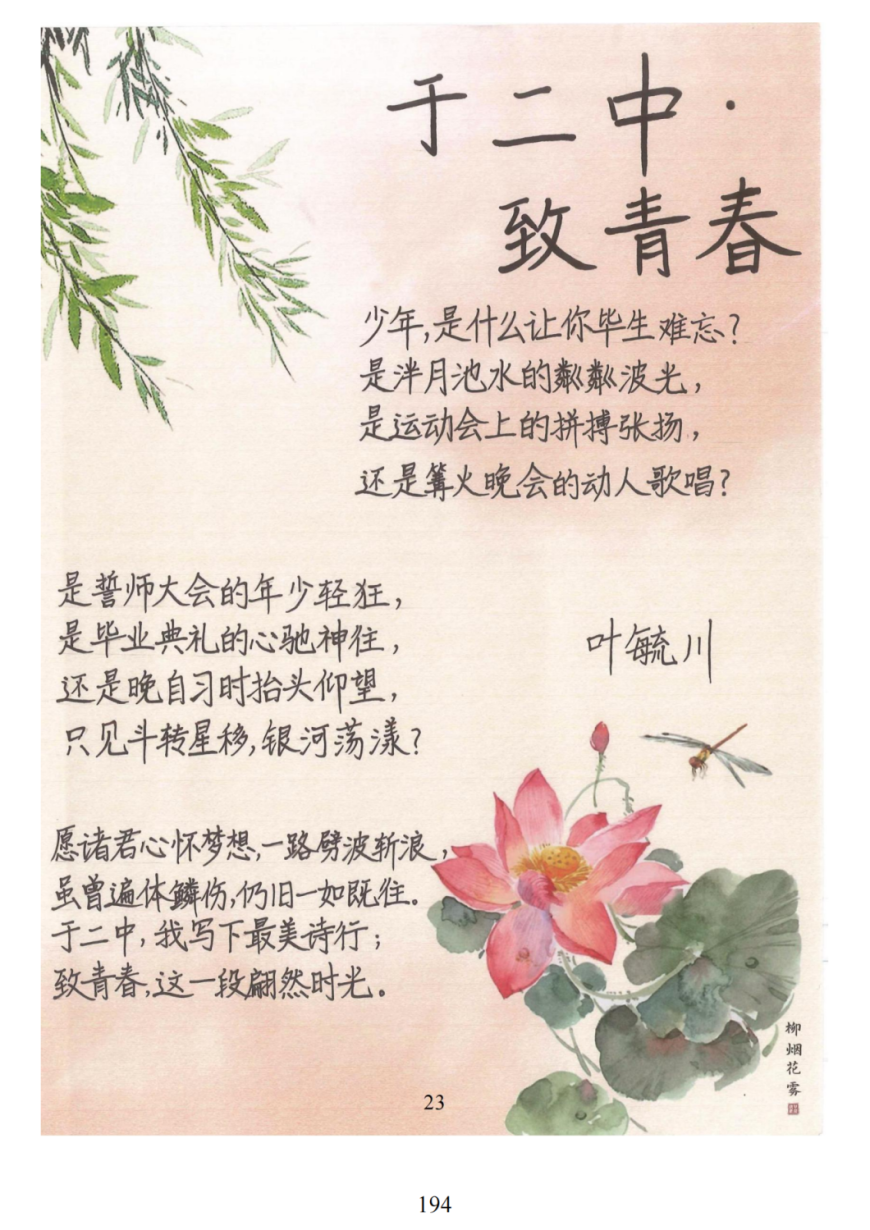 于二中·
致青春
少年,是什么让你毕生难忘?
是泮月池水的粼粼波光,
是运动会上的拼搏张扬,
还是篝火晚会的动人歌唱?
是誓师大会的年少轻狂,
是毕业典礼的心驰神往,
还是晚自习时抬头仰望,
只见斗转星移,银河荡漾?
叶毓川
愿诸君心怀梦想,一路劈波斩浪,
虽曾遍体鳞伤,仍旧一如既往。
于二中,我写下最美诗行;
致青春,这一段翩然时光。
柳烟花雾
23
194